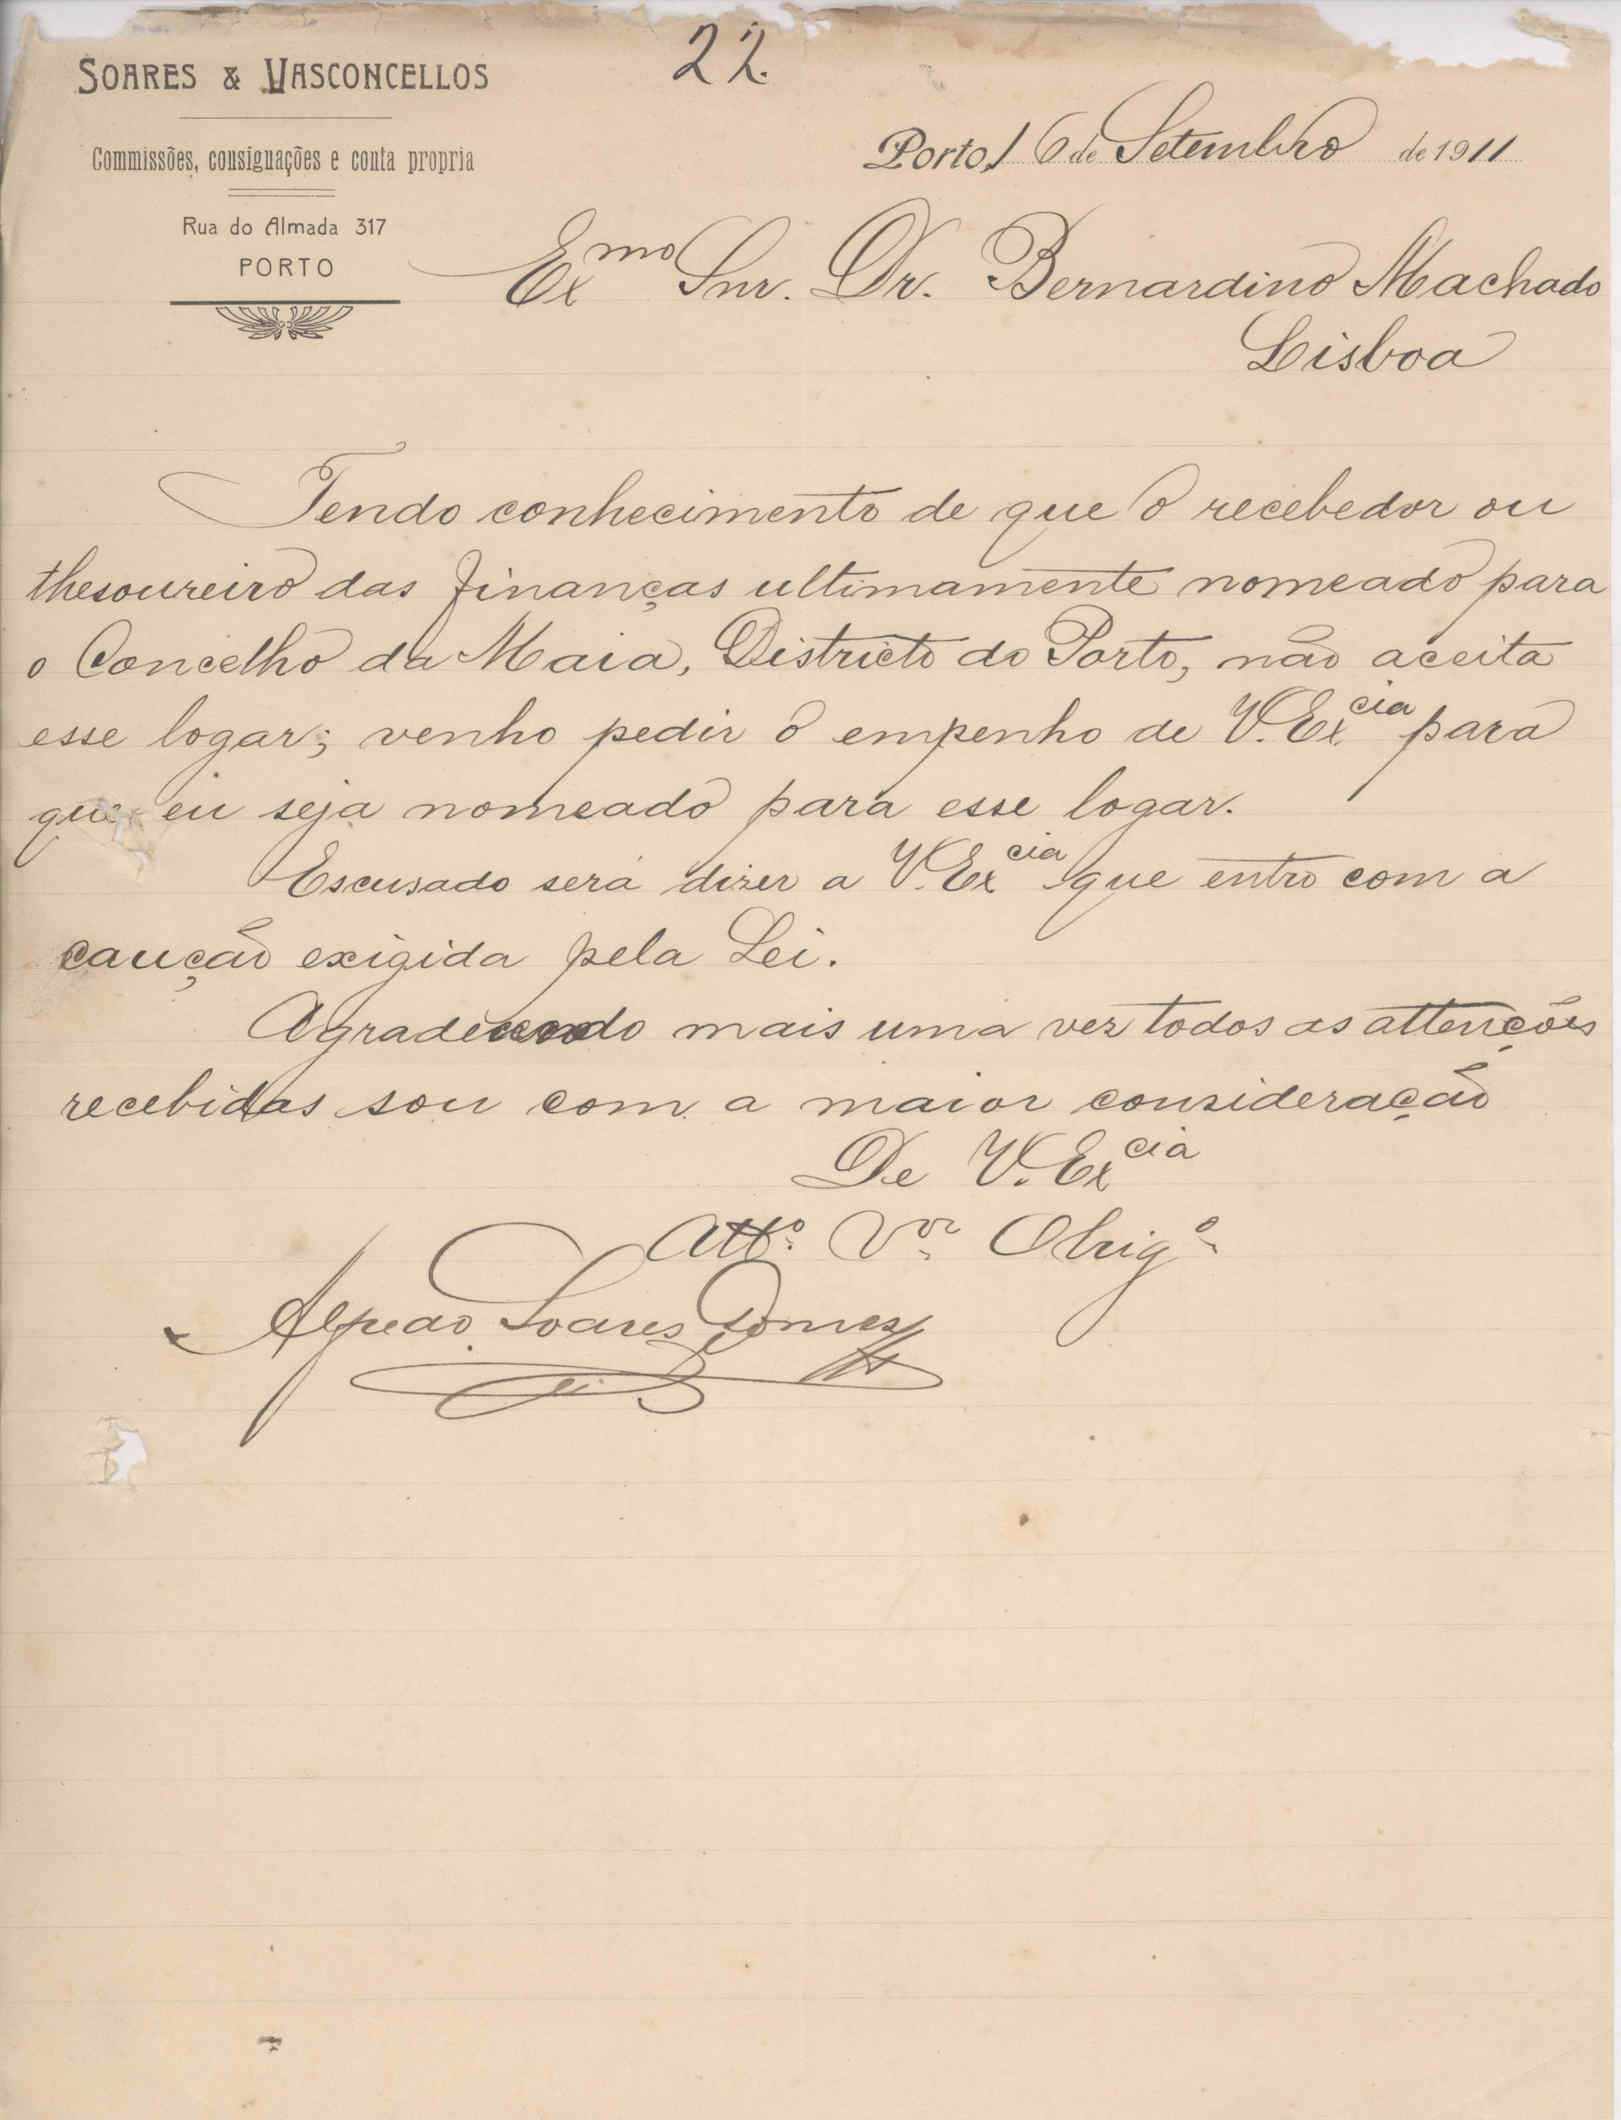 22.
SOARES & VASCONCELLOS
Commissões, consignações e conta propria
Rua do Almada 317
PORTO
Porto, 16 de Setembro de 1911
Exmo Snr. Dr. Bernardino Machado
Lisboa
Tendo conhecimento de que o recebedor ou
thesoureiro das finanças ultimamente nomeado para
o Concelho da Maia, Districto do Porto, não aceita
esse logar; venho pedir o empenho de V. Excia para
que eu seja nomeado para esse logar.
Escusado será dizer a V. Excia que entro com a
caução exigida pela Lei.
Agradecendo mais uma vez todos as attenções
recebidas sou com a maior consideração
De V. Excia
Atto. Vor. Obrigo.
Alfredo Soares Gomes